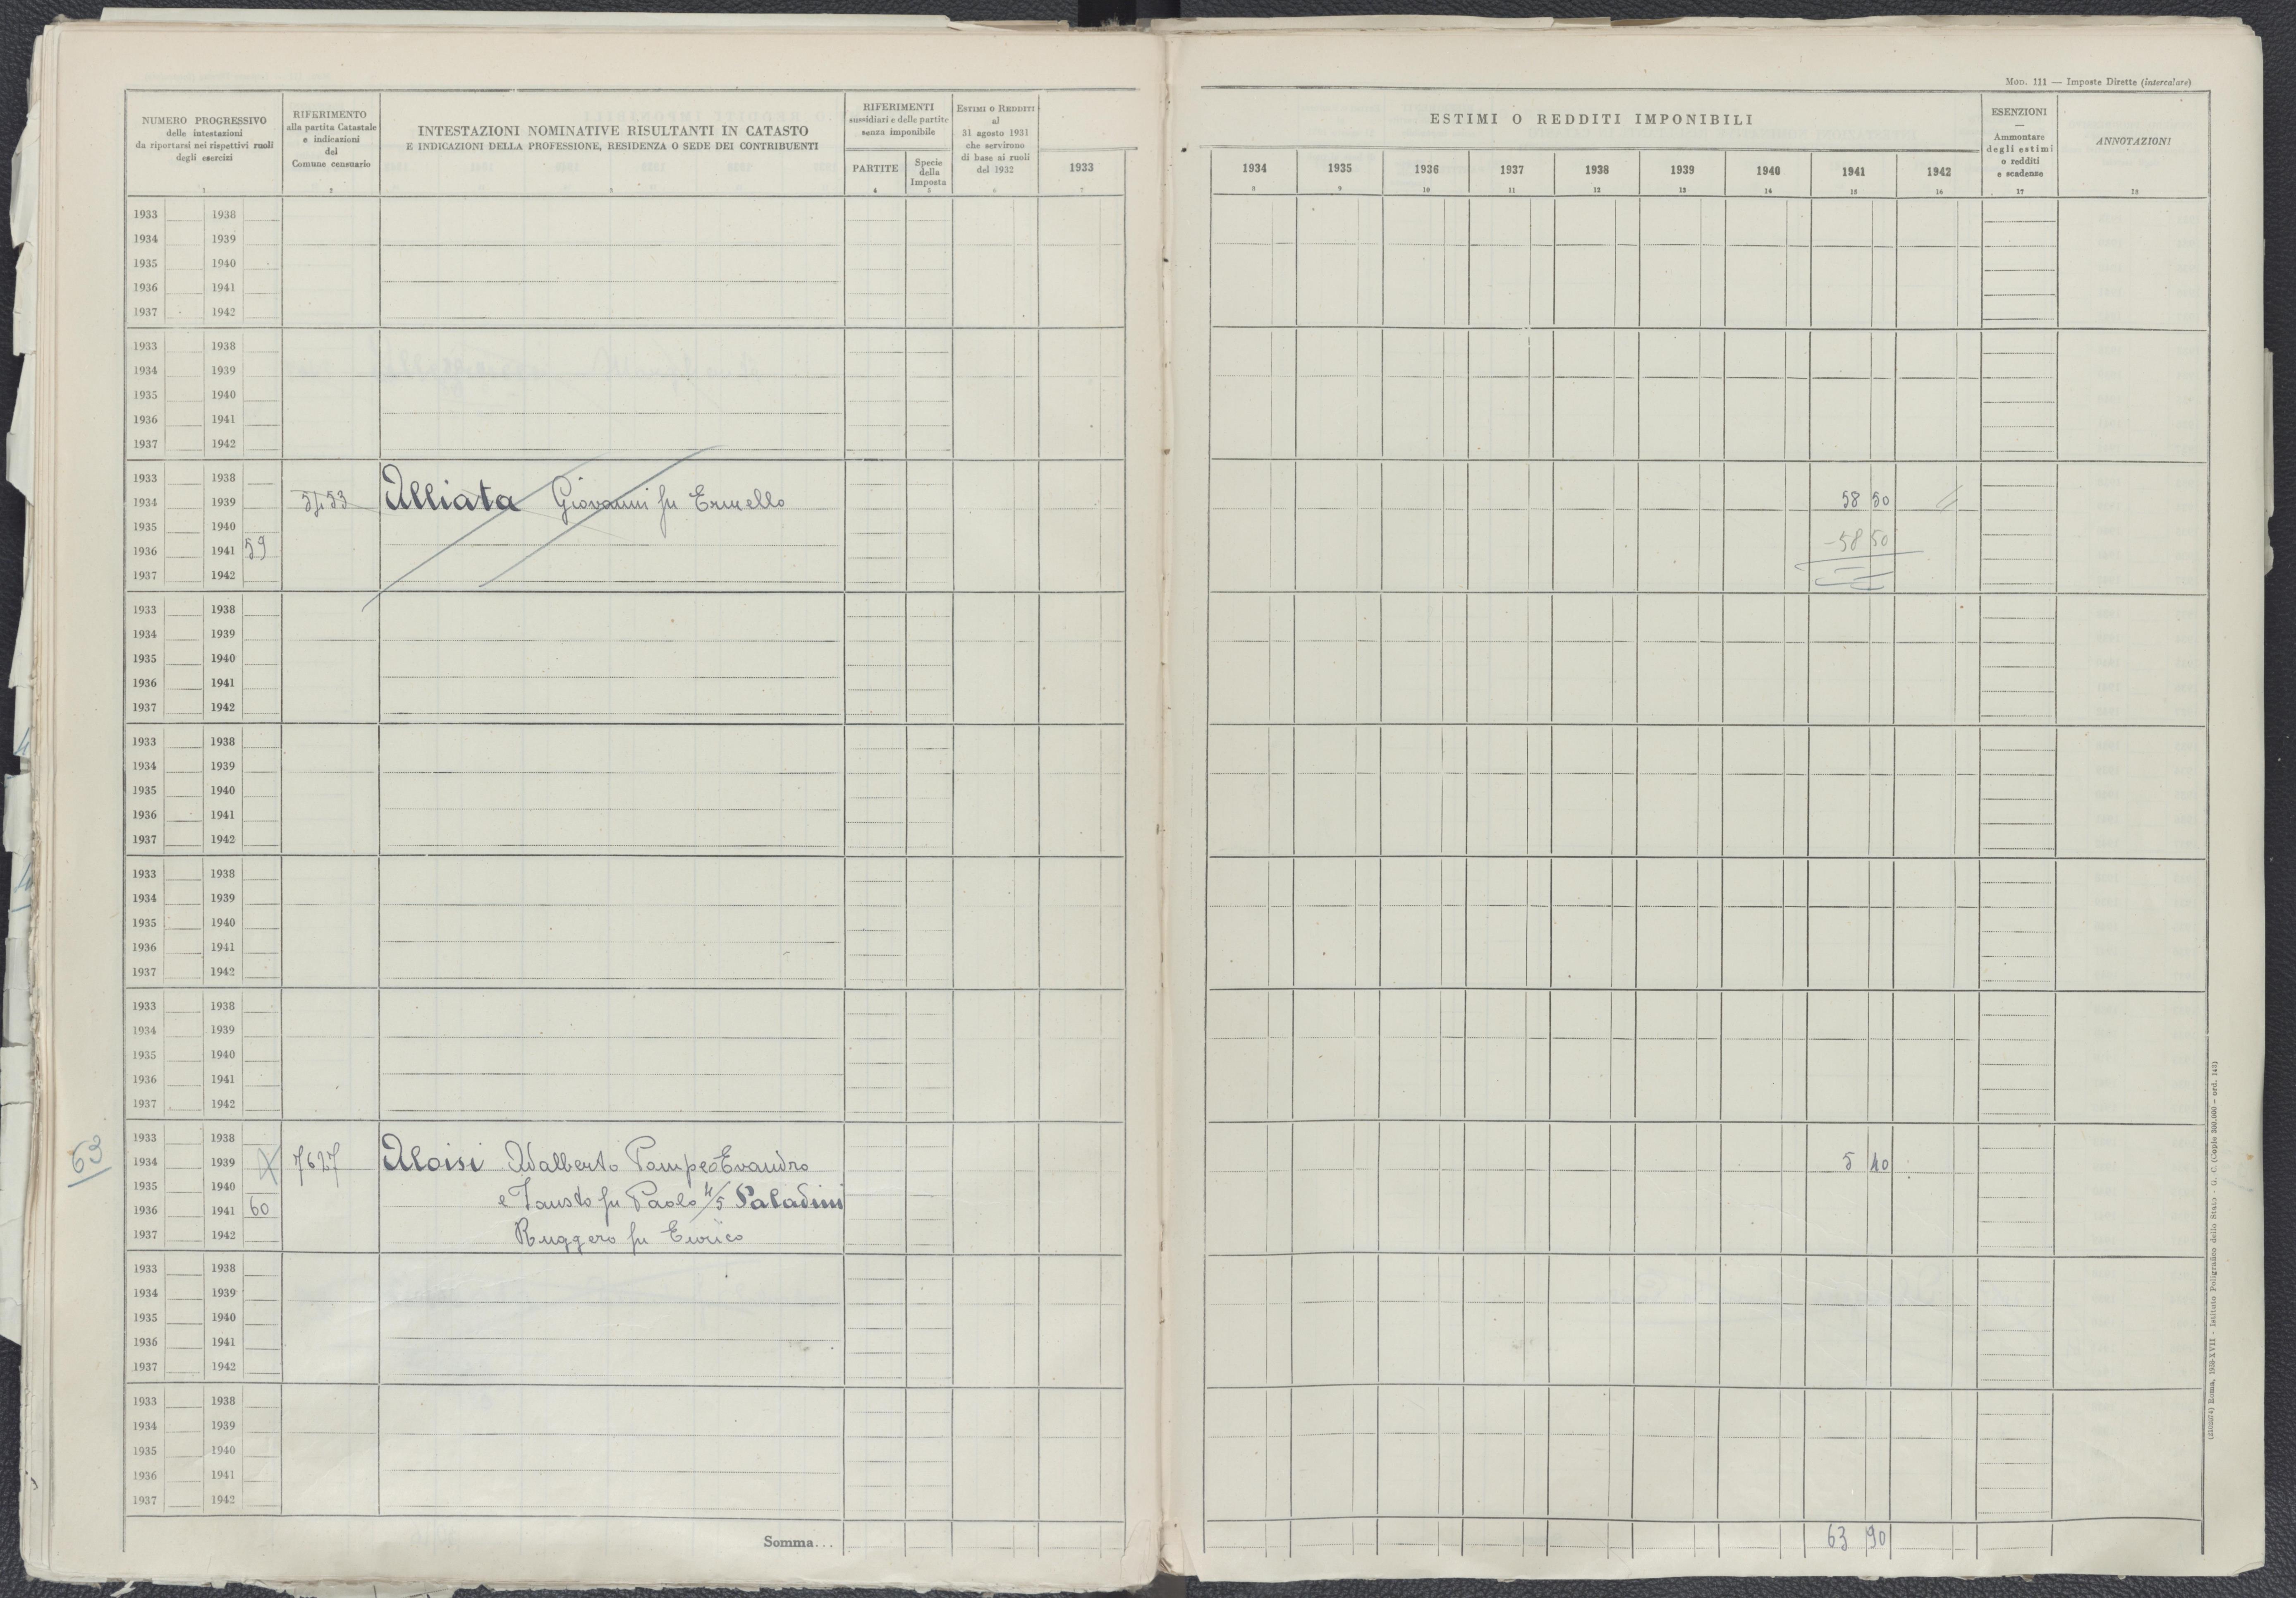 MOD. 111 — Imposte Dirette (intercalare)
NUMERO PROGRESSIVO
delle intestazioni
da riportarsi nei rispettivi ruoli
degli esercizi
1
RIFERIMENTO
alla partita Catastale
e indicazioni
del
Comune censuario
2
INTESTAZIONI NOMINATIVE RISULTANTI IN CATASTO
E INDICAZIONI DELLA PROFESSIONE, RESIDENZA O SEDE DEI CONTRIBUENTI
3
RIFERIMENTI
sussidiari e delle partite
senza imponibile
PARTITE
4
Specie
della
Imposta
5
ESTIMI O REDDITI
al
31 agosto 1931
che servirono
di base ai ruoli
del 1932
6
1933
7
ESTIMI O REDDITI IMPONIBILI
1934 1935 1936 1937 1938 1939 1940 1941 1942
8 9 10 11 12 13 14 15 16
ESENZIONI
—
Ammontare
degli estimi
o redditi
e scadenze
17
ANNOTAZIONI
18
1933 1938
1934 1939
1935 1940
1936 1941
1937 1942
1933 1938
1934 1939
1935 1940
1936 1941
1937 1942
1933 1938
1934 1939 Alliata Giovanni fu Ermello 58 50
1935 1940
1936 1941 59 -58 50
1937 1942
1933 1938
1934 1939
1935 1940
1936 1941
1937 1942
1933 1938
1934 1939
1935 1940
1936 1941
1937 1942
1933 1938
1934 1939
1935 1940
1936 1941
1937 1942
1933 1938
1934 1939
1935 1940
1936 1941
1937 1942
63
1933 1938
1934 1939 7627 Aloisi Adalberto Pompeo Evandro 5 40
1935 1940
1936 1941 60 e Fausto fu Paolo 4/5 Paladini
1937 1942 Ruggero fu Enrico
1933 1938
1934 1939
1935 1940
1936 1941
1937 1942
1933 1938
1934 1939
1935 1940
1936 1941
1937 1942
Somma... 63 90